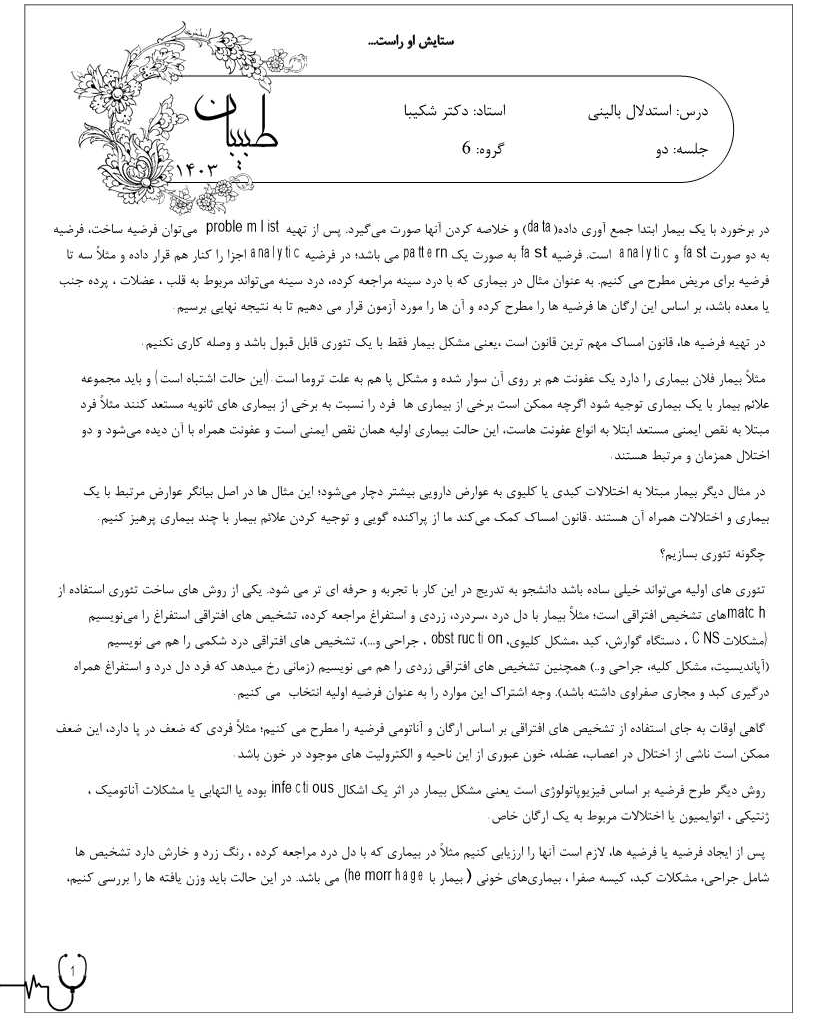 ستایش او راست...
درس: استدلال بالینی
استاد: دکتر شکیبا
جلسه: دو
گروه: 6
طبیبان
۱۴۰۳
در برخورد با یک بیمار ابتدا جمع آوری داده(data) و خلاصه کردن آنها صورت می‌گیرد. پس از تهیه problem list می‌توان فرضیه ساخت، فرضیه
به دو صورت fast و analytic است. فرضیه fast به صورت یک pattern می باشد؛ در فرضیه analytic اجزا را کنار هم قرار داده و مثلاً سه تا
فرضیه برای مریض مطرح می کنیم. به عنوان مثال در بیماری که با درد سینه مراجعه کرده، درد سینه می‌تواند مربوط به قلب ، عضلات ، پرده جنب
یا معده باشد، بر اساس این ارگان ها فرضیه ها را مطرح کرده و آن ها را مورد آزمون قرار می دهیم تا به نتیجه نهایی برسیم.
در تهیه فرضیه ها، قانون امساک مهم ترین قانون است ،یعنی مشکل بیمار فقط با یک تئوری قابل قبول باشد و وصله کاری نکنیم.
مثلاً بیمار فلان بیماری را دارد یک عفونت هم بر روی آن سوار شده و مشکل پا هم به علت تروما است.(این حالت اشتباه است) و باید مجموعه
علائم بیمار با یک بیماری توجیه شود اگرچه ممکن است برخی از بیماری ها فرد را نسبت به برخی از بیماری های ثانویه مستعد کنند مثلاً فرد
مبتلا به نقص ایمنی مستعد ابتلا به انواع عفونت هاست، این حالت بیماری اولیه همان نقص ایمنی است و عفونت همراه با آن دیده می‌شود و دو
اختلال همزمان و مرتبط هستند.
در مثال دیگر بیمار مبتلا به اختلالات کبدی یا کلیوی به عوارض دارویی بیشتر دچار می‌شود؛ این مثال ها در اصل بیانگر عوارض مرتبط با یک
بیماری و اختلالات همراه آن هستند .قانون امساک کمک می‌کند ما از پراکنده گویی و توجیه کردن علائم بیمار با چند بیماری پرهیز کنیم.
چگونه تئوری بسازیم؟
تئوری های اولیه می‌تواند خیلی ساده باشد دانشجو به تدریج در این کار با تجربه و حرفه ای تر می شود. یکی از روش های ساخت تئوری استفاده از
matchهای تشخیص افتراقی است؛ مثلاً بیمار با دل درد ،سردرد، زردی و استفراغ مراجعه کرده، تشخیص های افتراقی استفراغ را می‌نویسیم
(مشکلات CNS ، دستگاه گوارش، کبد ،مشکل کلیوی، obstruction ، جراحی و...)، تشخیص های افتراقی درد شکمی را هم می نویسیم
(آپاندیسیت، مشکل کلیه، جراحی و..) همچنین تشخیص های افتراقی زردی را هم می نویسیم (زمانی رخ میدهد که فرد دل درد و استفراغ همراه
درگیری کبد و مجاری صفراوی داشته باشد). وجه اشتراک این موارد را به عنوان فرضیه اولیه انتخاب می کنیم.
گاهی اوقات به جای استفاده از تشخیص های افتراقی بر اساس ارگان و آناتومی فرضیه را مطرح می کنیم؛ مثلاً فردی که ضعف در پا دارد، این ضعف
ممکن است ناشی از اختلال در اعصاب، عضله، خون عبوری از این ناحیه و الکترولیت های موجود در خون باشد.
روش دیگر طرح فرضیه بر اساس فیزیوپاتولوژی است یعنی مشکل بیمار در اثر یک اشکال infectious بوده یا التهابی یا مشکلات آناتومیک ،
ژنتیکی ، اتوایمیون یا اختلالات مربوط به یک ارگان خاص.
پس از ایجاد فرضیه یا فرضیه ها، لازم است آنها را ارزیابی کنیم مثلاً در بیماری که با دل درد مراجعه کرده ، رنگ زرد و خارش دارد تشخیص ها
شامل جراحی، مشکلات کبد، کیسه صفرا ، بیماری‌های خونی ( بیمار با hemorrhage) می باشد. در این حالت باید وزن یافته ها را بررسی کنیم،
1